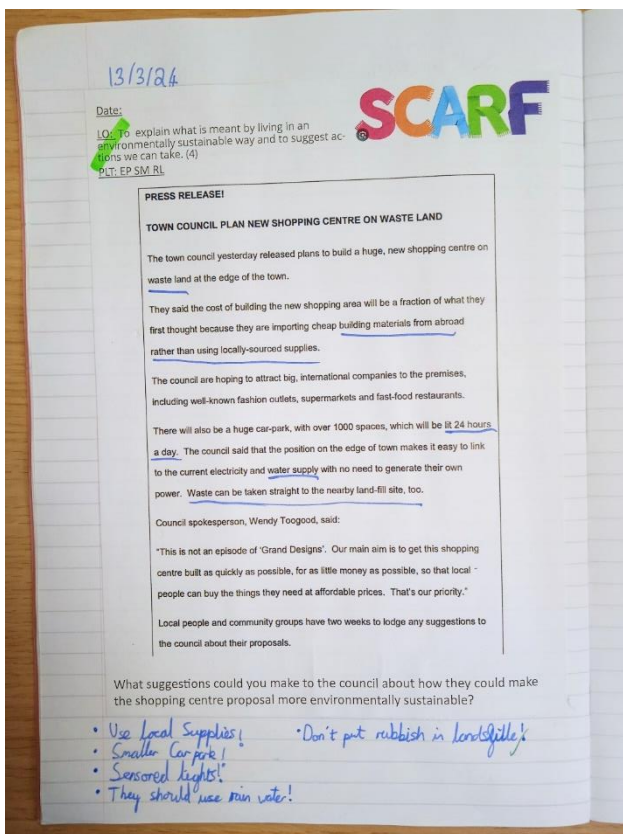 13/3/24
SCARF
Date:
LO: To explain what is meant by living in an
environmentally sustainable way and to suggest ac-
tions we can take. (4)
PLT: EP SM RL
PRESS RELEASE!
TOWN COUNCIL PLAN NEW SHOPPING CENTRE ON WASTE LAND
The town council yesterday released plans to build a huge, new shopping centre on
waste land at the edge of the town.
They said the cost of building the new shopping area will be a fraction of what they
first thought because they are importing cheap building materials from abroad
rather than using locally-sourced supplies.
The council are hoping to attract big, international companies to the premises,
including well-known fashion outlets, supermarkets and fast-food restaurants.
There will also be a huge car-park, with over 1000 spaces, which will be lit 24 hours
a day. The council said that the position on the edge of town makes it easy to link
to the current electricity and water supply with no need to generate their own
power. Waste can be taken straight to the nearby land-fill site, too.
Council spokesperson, Wendy Toogood, said:
"This is not an episode of 'Grand Designs'. Our main aim is to get this shopping
centre built as quickly as possible, for as little money as possible, so that local
people can buy the things they need at affordable prices. That's our priority."
Local people and community groups have two weeks to lodge any suggestions to
the council about their proposals.
What suggestions could you make to the council about how they could make
the shopping centre proposal more environmentally sustainable?
• Use Local Supplies!
• Smaller Car park!
• Sensored lights!
• They should use rain water!
• Don't put rubbish in landsfille!